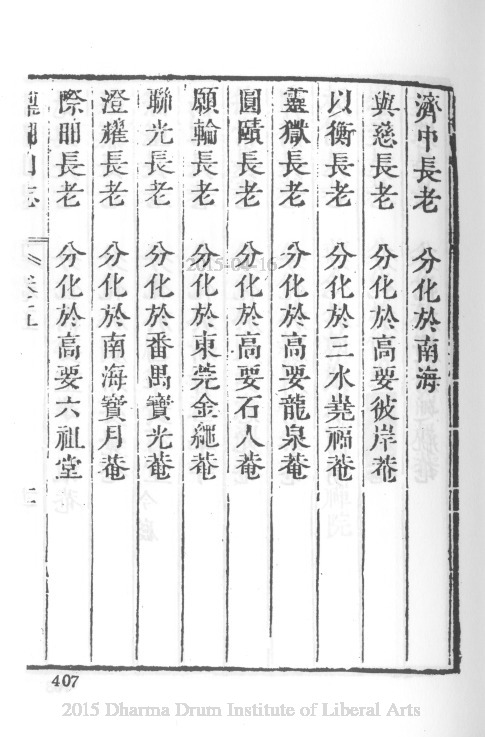 濟中長老 分化於南海
與慈長老 分化於高要彼岸菴
以衡長老 分化於三水堯福菴
靈獄長老 分化於高要龍泉菴
圓賾長老 分化於高要石人菴
願輪長老 分化於東莞金繩菴
聯光長老 分化於番禺寶光菴
澄耀長老 分化於南海寶月菴
際即長老 分化於高要六祖堂
山志 卷五
407
2015-04-16
2015 Dharma Drum Institute of Liberal Arts